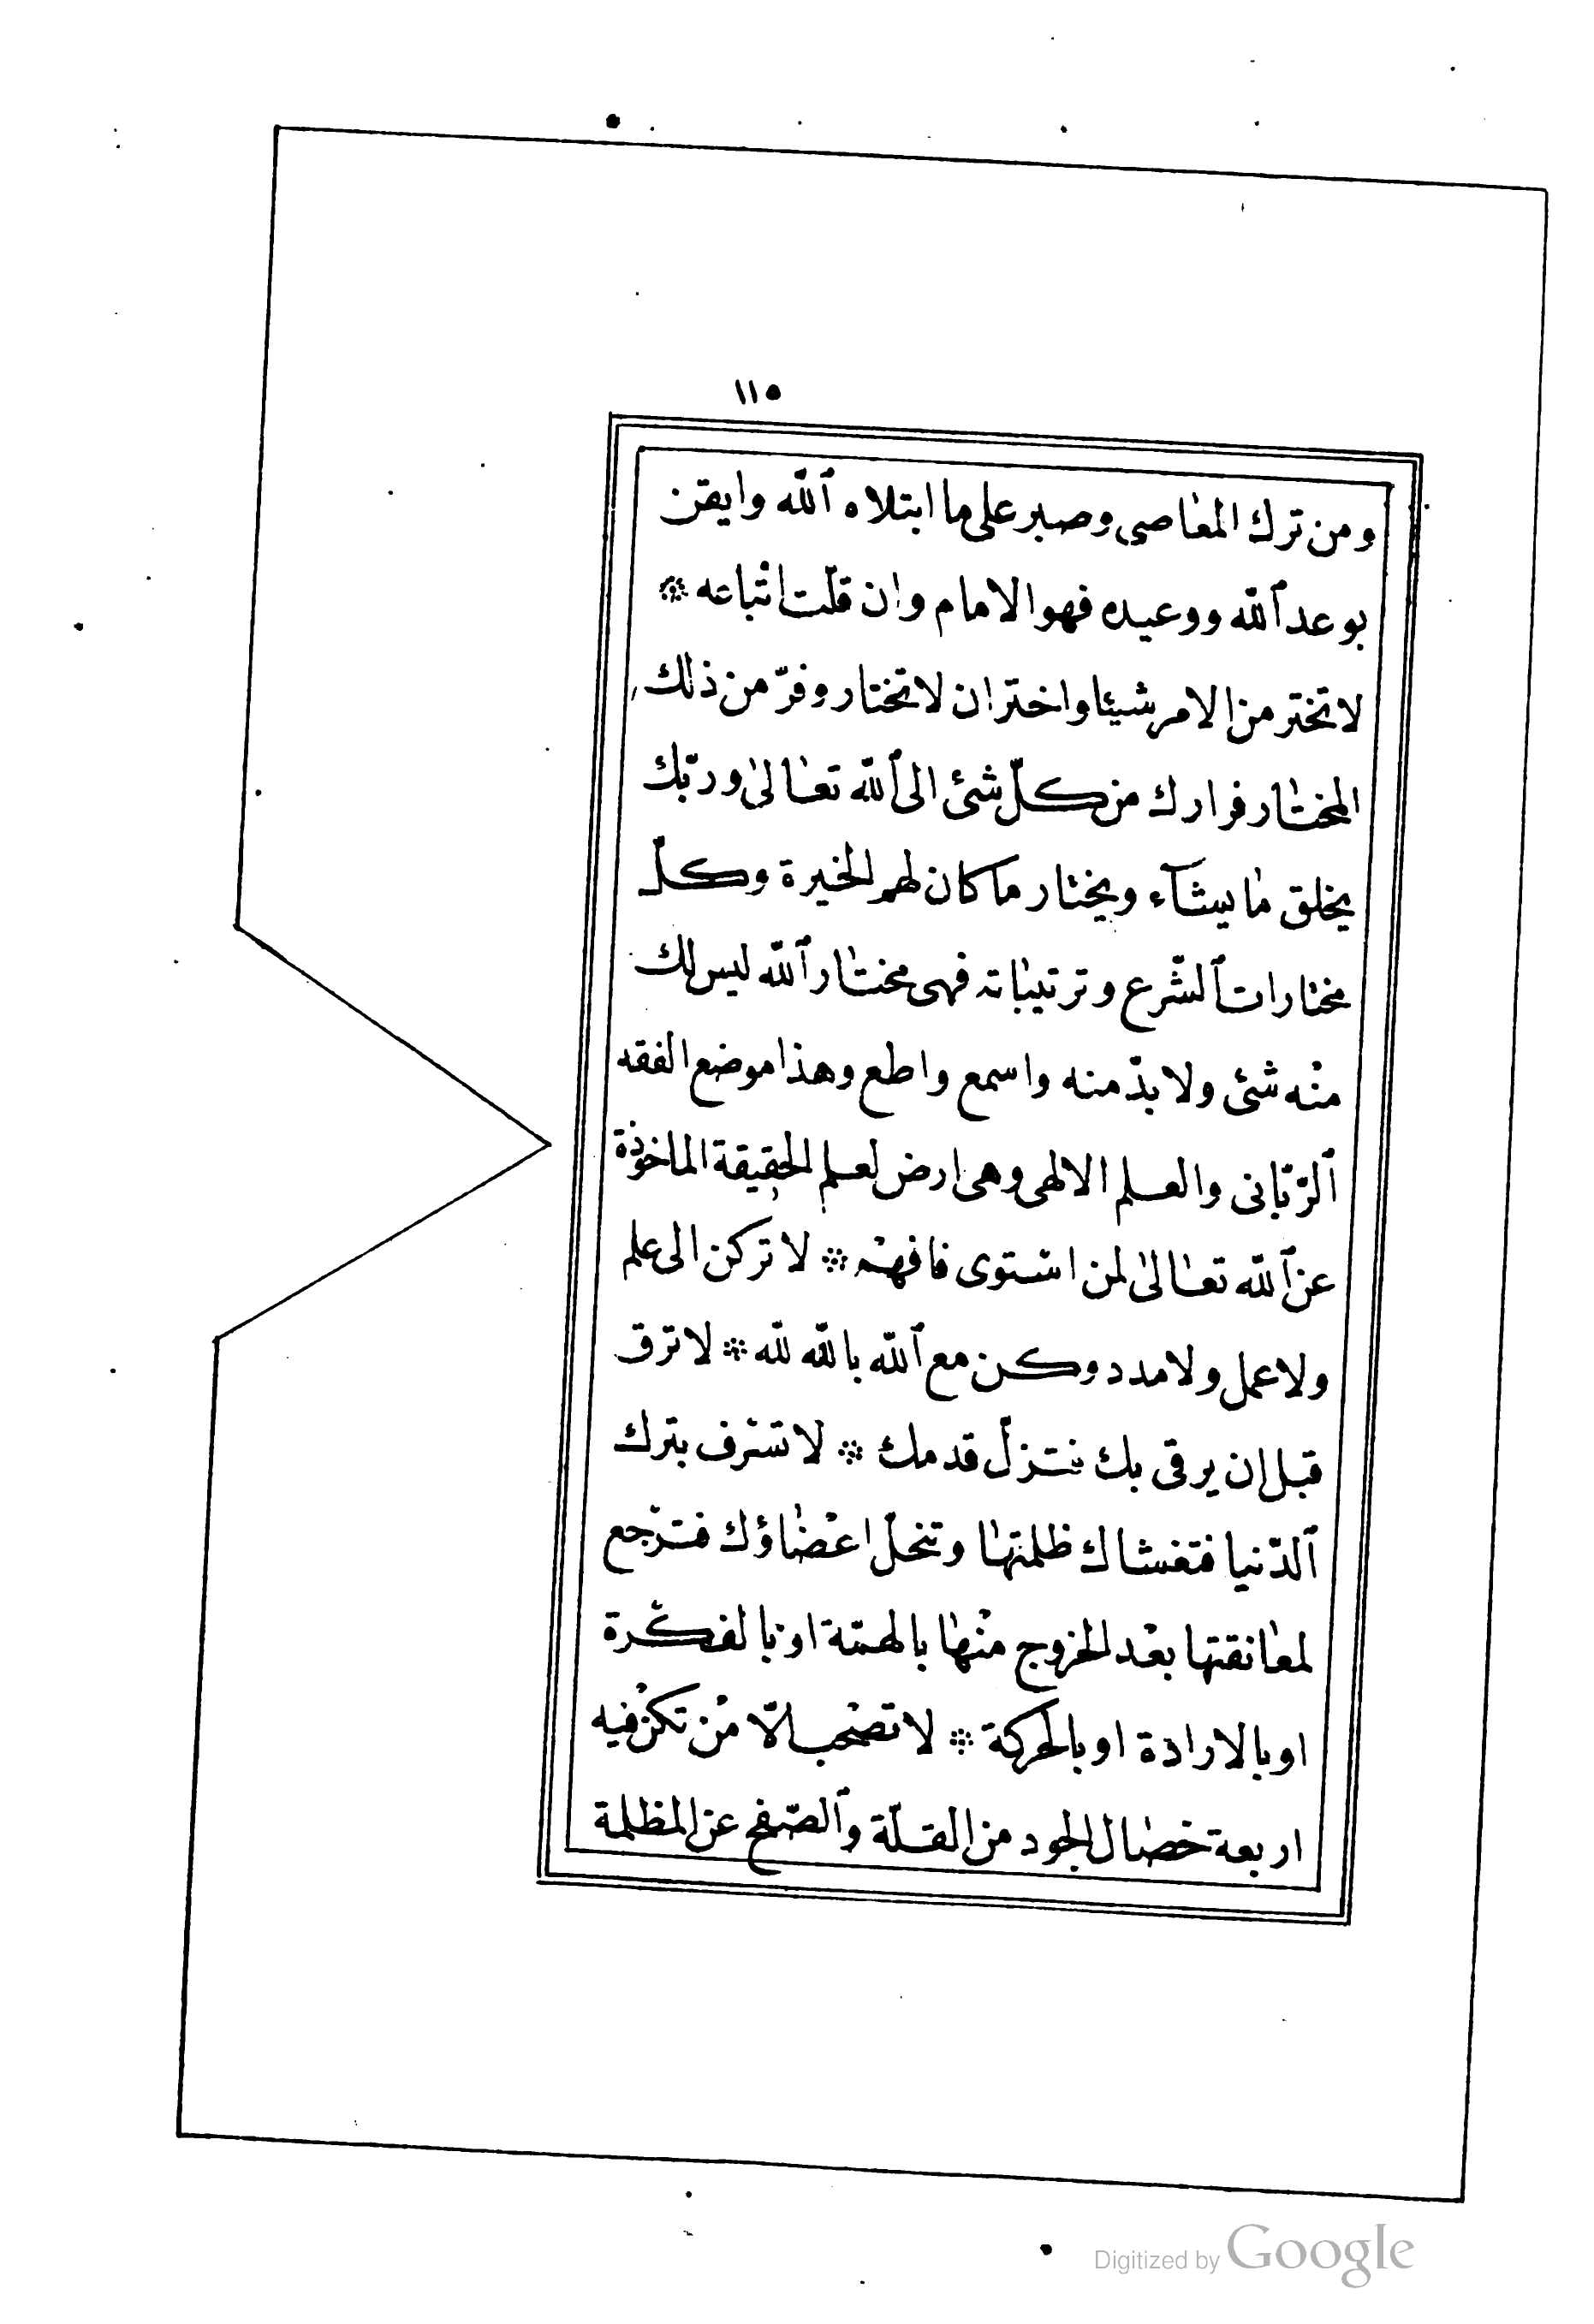 ١١٥
ومن ترك المعاصى وصبر على ما ابتلاه الله وايقن
بوعد الله ووعيده فهو الامام وان قلّت اتباعه *
لا تختر من الامر شيئا واختر ان لا تختار وفرّ من ذلك
المختار فرارك من كلّ شئ الى الله تعالى وربّك
يخلق ما يشآء ويختار ما كان لهم الخيرة وكلّ
مختارات الشّرع وترتيباته فهى مختار الله ليس لك
منه شئ ولا بدّ منه واسمع واطع وهذا موضع الفقه
الرّبّانى والعلم الالهى وهى ارض لعلم الحقيقة الماخوذة
عن الله تعالى لمن استوى فافهم * لا تركن الى علم
ولا عمل ولا مدد وكن مع الله بالله لله * لا ترق
قبل ان يرقى بك فتزلّ قدمك * لا تسرف بترك
الدّنيا فتغشاك ظلمتها وتنحلّ اعضاؤك فترجع
لمعانقتها بعد الخروج منها بالهمّة او بالفكرة
او بالارادة او بالحركة * لا تصحب الّا من تكن فيه
اربعة خصال الجود من القلّة والصّفح عن المظلمة
Digitized by Google